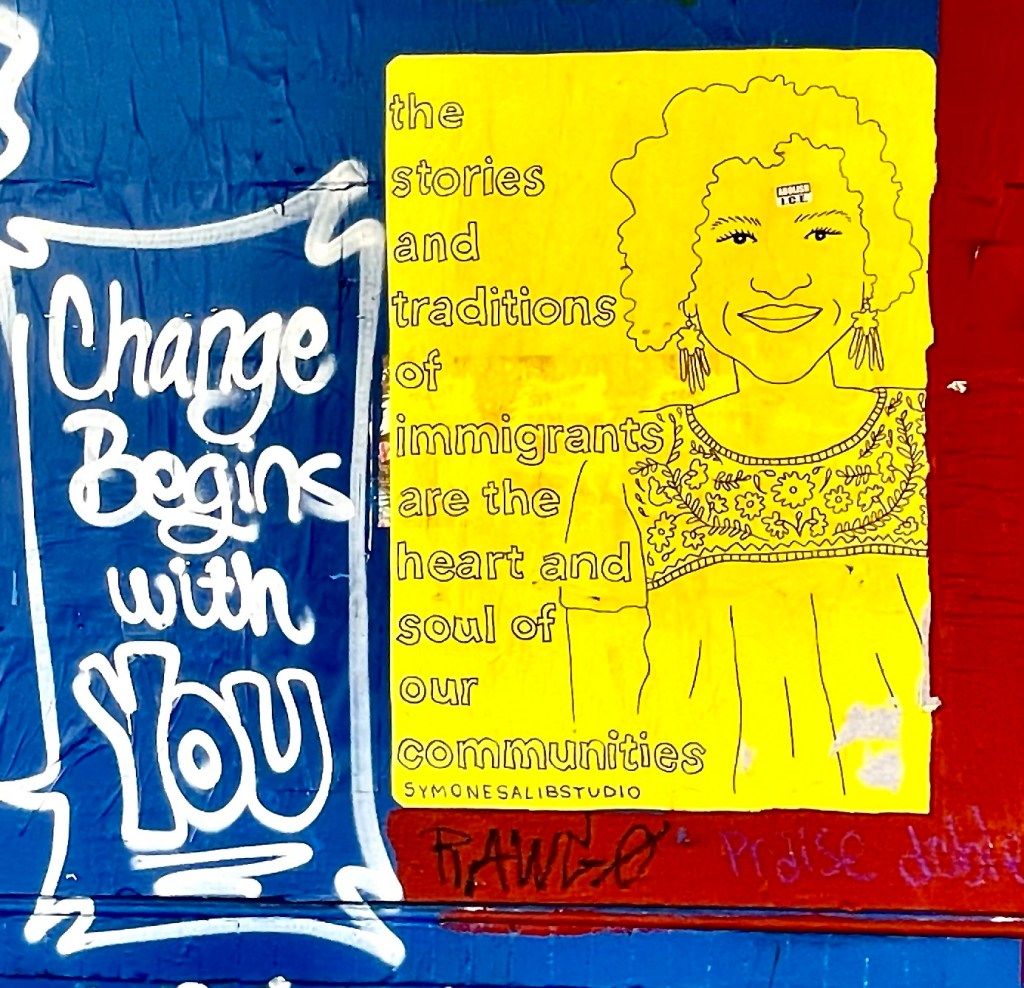 Change
Begins
with
YOU
the
stories
and
traditions
of
immigrants
are the
heart and
soul of
our
communities
SYMONESALIBSTUDIO
ABOLISH
I.C.E.
Praise